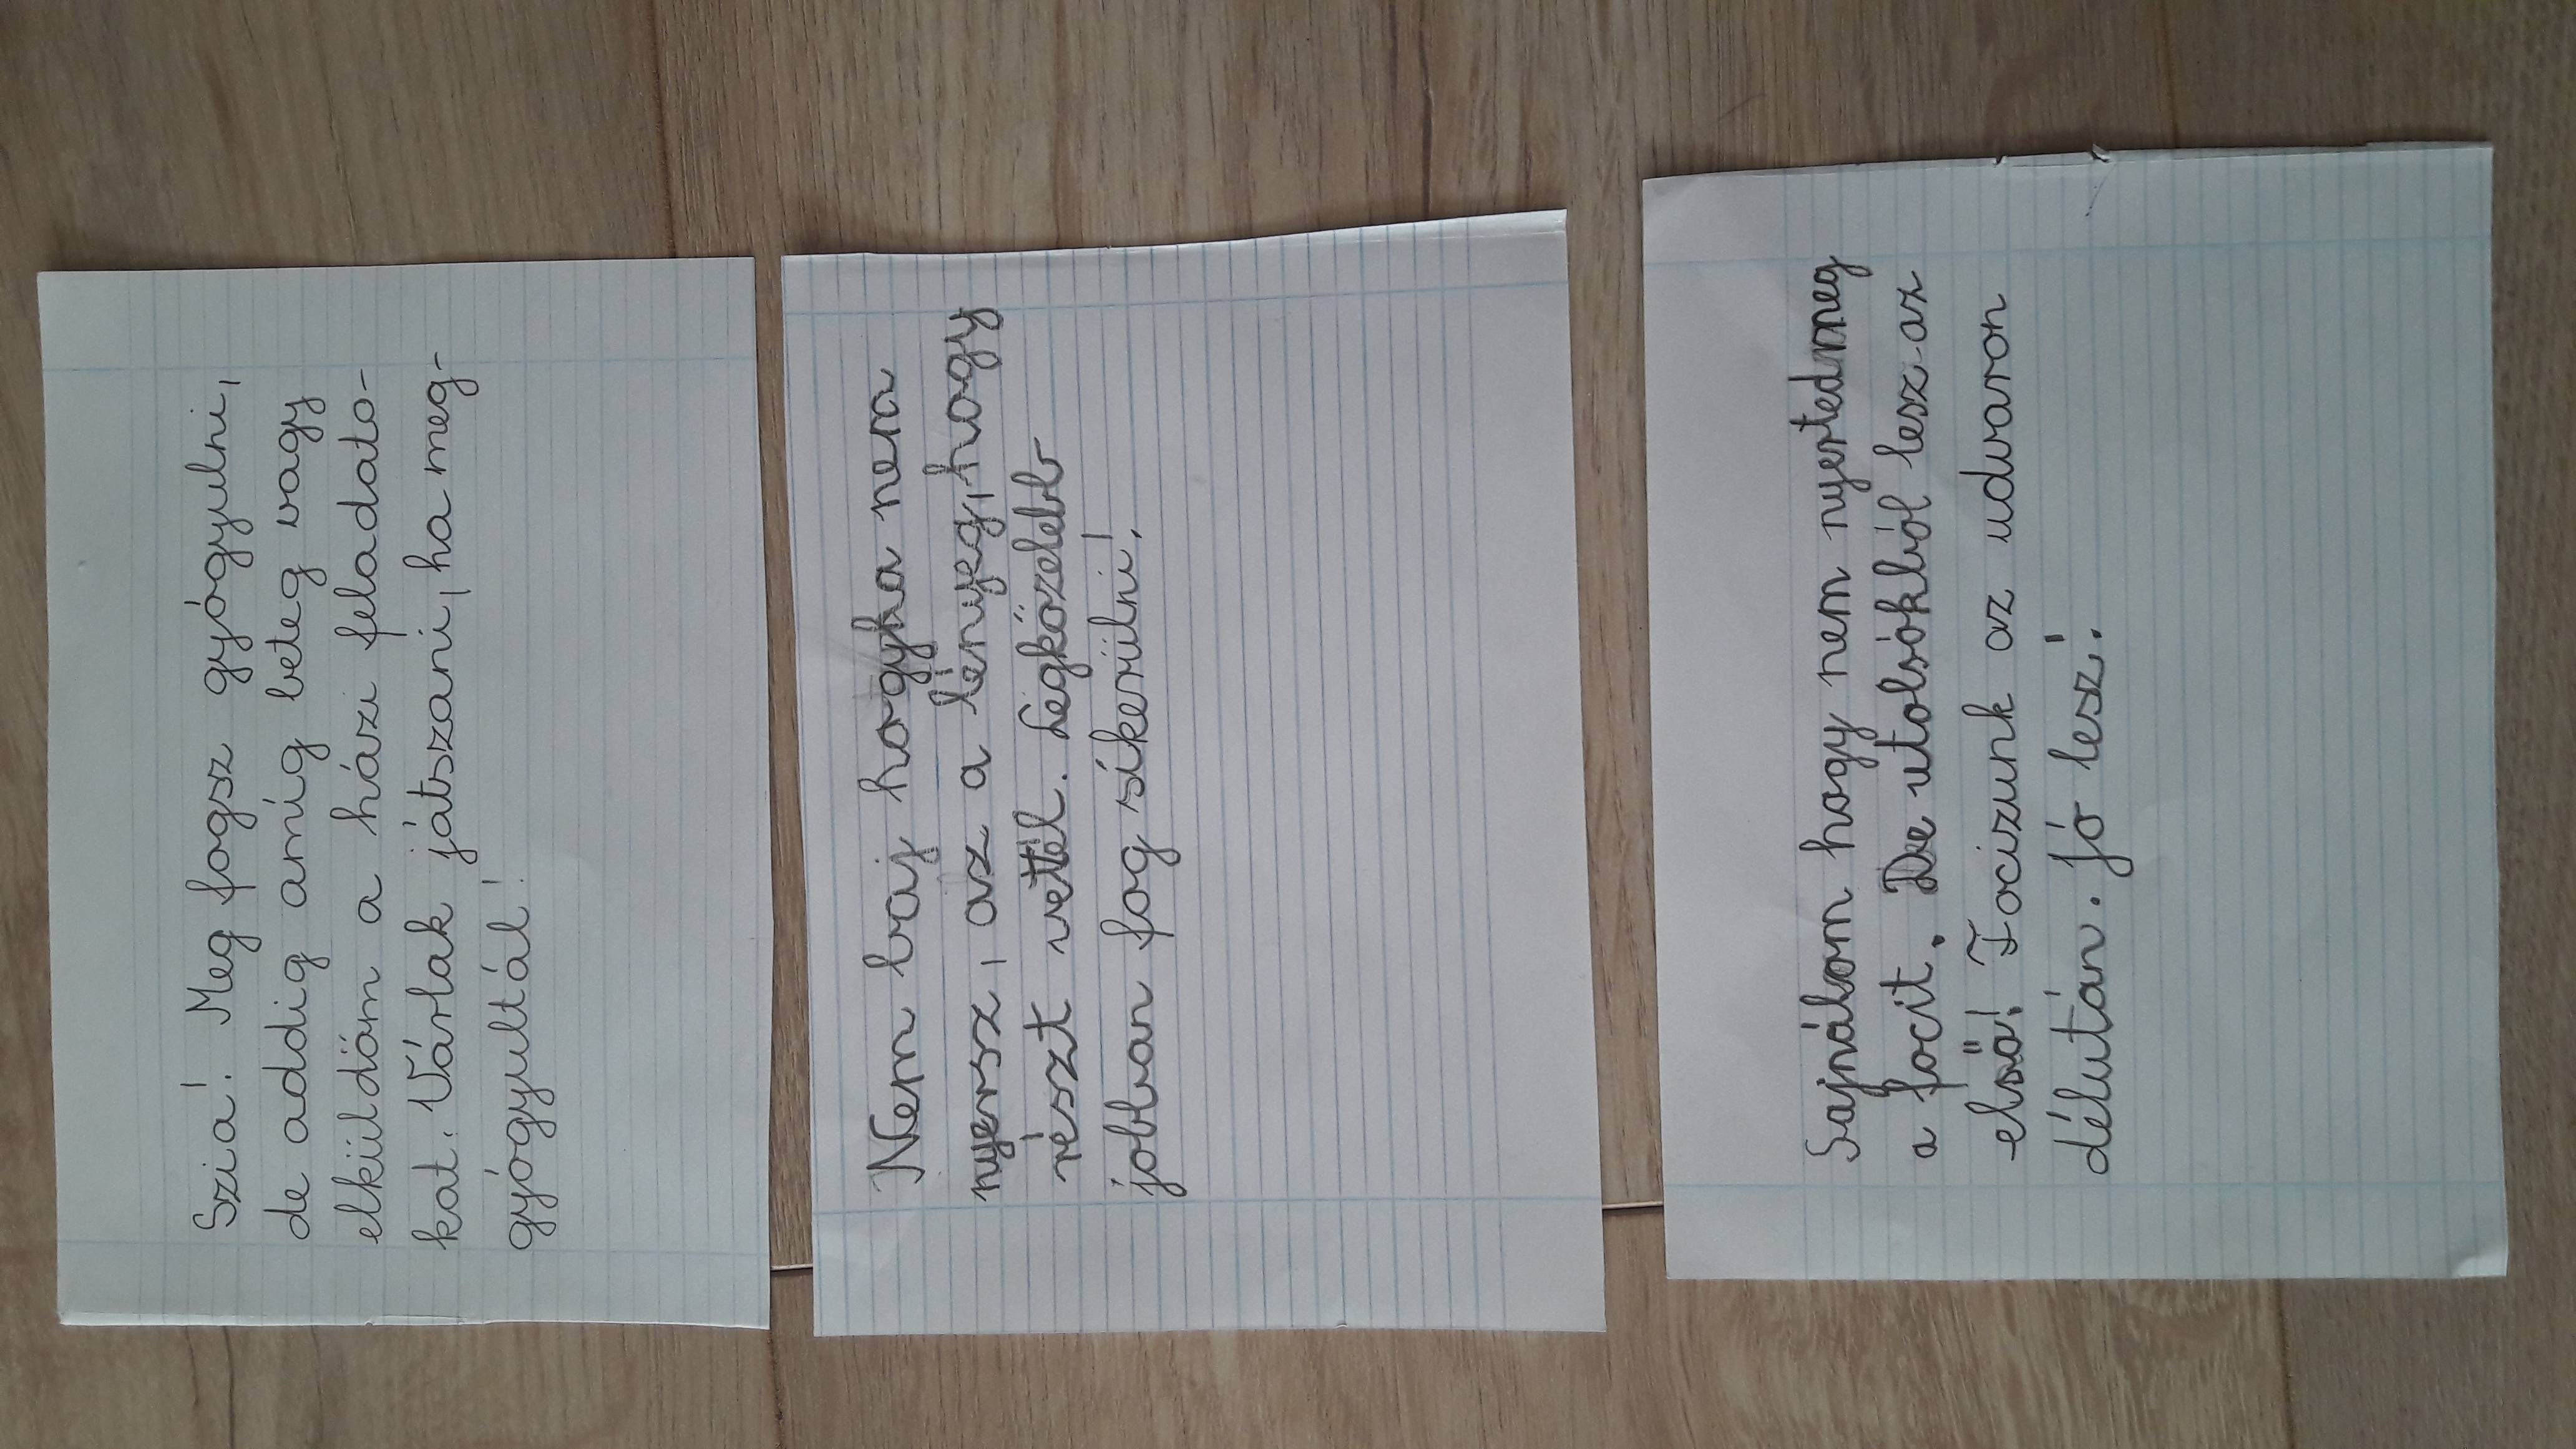 Szia! Meg fogsz gyógyulni,
de addig amíg beteg vagy
elküldöm a házi feladato-
kat. Várlak játszani, ha meg-
gyógyultál!
Nem baj hogyha nem
nyersz, az a lényeg, hogy
részt vettél. Legközelebb
jobban fog síkerülni!
Sajnálom hogy nem nyertedmeg
a focit. De utolsókból lesz az
első! Focizunk az udvaron
délután. jó lesz!